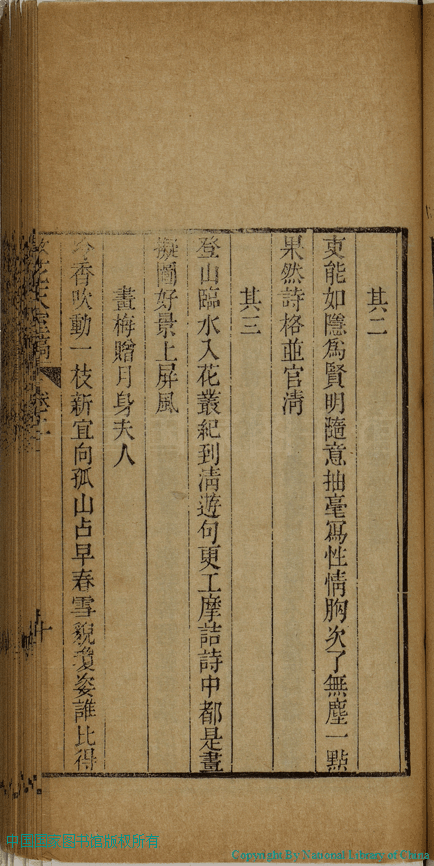 其二
吏能如隱爲賢明隨意抽毫寫性情胸次了無塵一點
果然詩格並官淸
其三
登山臨水入花叢紀到淸遊句更工摩詰詩中都是畫
擬圖好景上屛風
畫梅贈月身夫人
香吹動一枝新宜向孤山占早春雪貌瓊姿誰比得
稿
中国国家图书馆版权所有
Copyright By National Library of China